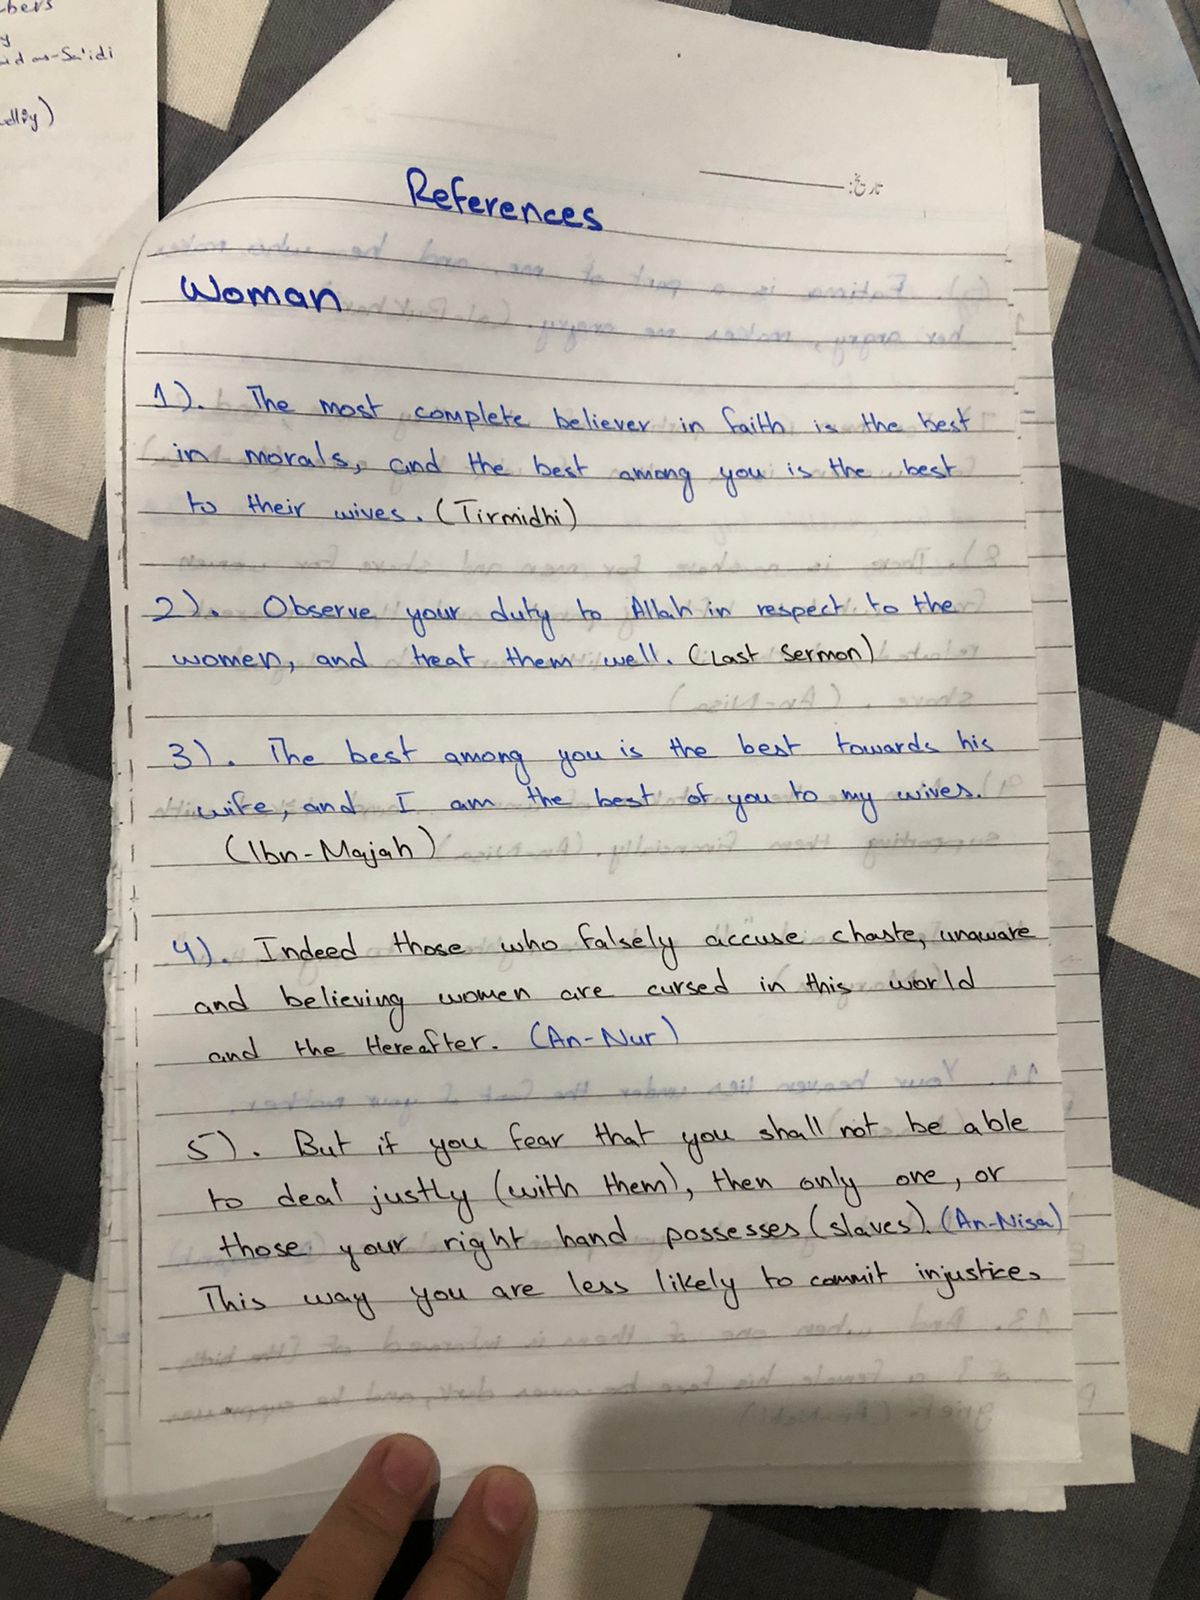 bers
y
nd as-Sa'idi
References
تاریخ:
Woman
1). The most complete believer in faith is the best
in morals, and the best among you is the best
to their wives. (Tirmidhi)
2). Observe your duty to Allah in respect to the
women, and treat them well. (Last Sermon)
3). The best among you is the best towards his
wife, and I am the best of you to my wives.
(Ibn-Majah)
4). Indeed those who falsely accuse chaste, unaware
and believing women are cursed in this world
and the Hereafter. (An-Nur)
5). But if you fear that you shall not be able
to deal justly (with them), then only one, or
those your right hand possesses (slaves). (An-Nisa)
This way you are less likely to commit injustice.